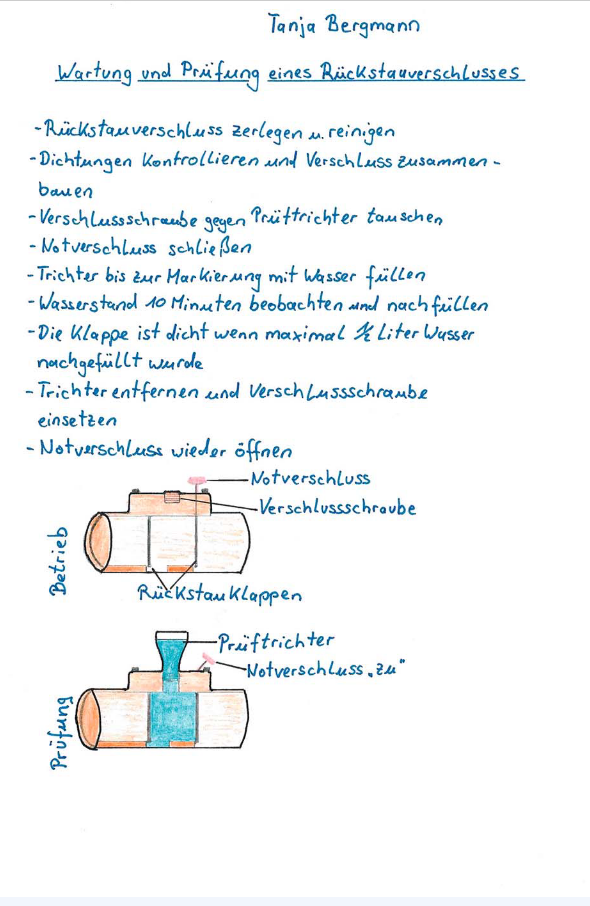 Tanja Bergmann
Wartung und Prüfung eines Rückstauverschlusses
-Rückstauverschluss zerlegen u. reinigen
-Dichtungen kontrollieren und Verschluss zusammen-
bauen
-Verschlussschraube gegen Prüftrichter tauschen
-Notverschluss schließen
-Trichter bis zur Markierung mit Wasser füllen
-Wasserstand 10 Minuten beobachten und nachfüllen
-Die Klappe ist dicht wenn maximal ½ Liter Wasser
nachgefüllt wurde
-Trichter entfernen und Verschlussschraube
einsetzen
-Notverschluss wieder öffnen
Notverschluss
Verschlussschraube
Betrieb
Rückstauklappen
Prüftrichter
Notverschluss „zu"
Prüfung